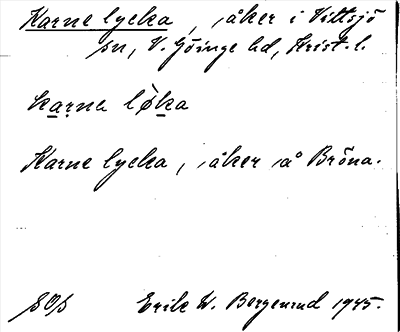 Karne lycka, åker i Vittsjö
sn, V. Göinge hd, Krist. l.
karna løka
Karne lycka, åker å Bröna.
SOS Erik W. Bergenrud 1945.